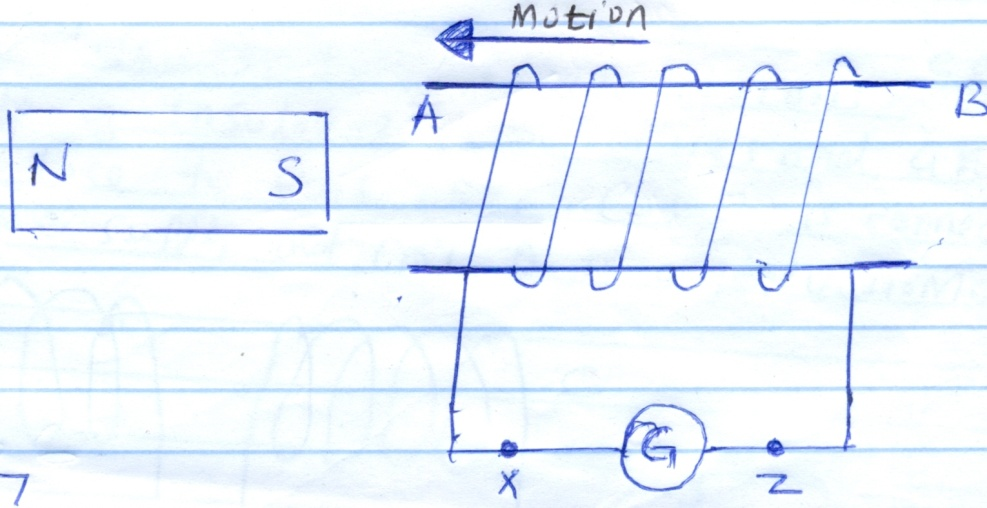 Motion
A B
N S
G
X Z
7